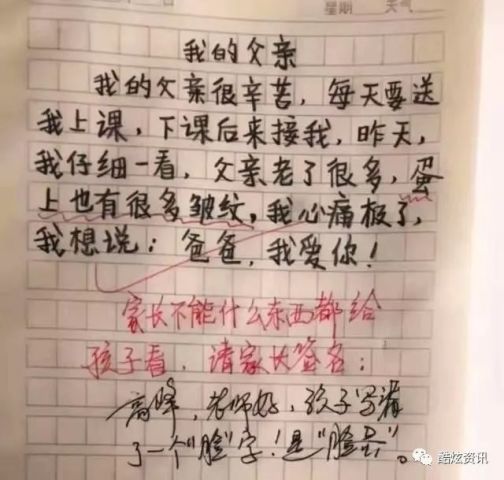 星期 天气
我的父亲
我的父亲很辛苦，每天要送
我上课，下课后来接我，昨天，
我仔细一看，父亲老了很多，蛋
上也有很多皱纹，我心痛极了，
我想说：爸爸，我爱你！
家长不能什么东西都给
孩子看，请家长签名：
高峰，老师好，孩子写漏
了一个“脸”字！是“脸蛋”。
酷炫资讯